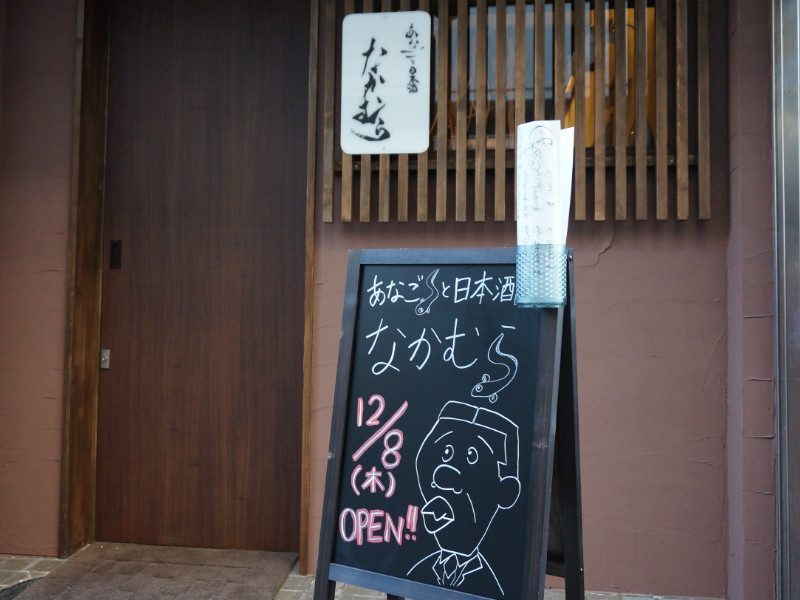 あなごと日本酒
なかむら
あなごと日本酒
なかむら
12/8
(木)
OPEN!!